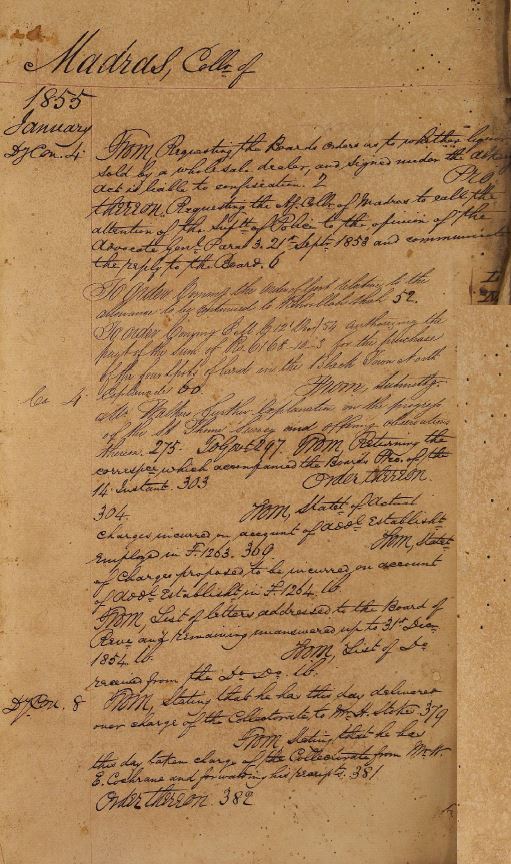 Madras, Collr. of
1855
January
Dy Con. 4. From Requesting the Boards orders as to whether
sold by a wholesale dealer, and signed under the
act is liable to confiscation. 2
thereon, Requesting the Collr. of Madras to call the
attention of the Supt. of Police to the opinion of the
Advocate Genl. Para 3. 21st Septr. 1853 and communicate
the reply to the Board. 6
To Order Conveying the order of Govt. relating to the
allowance to be continued to 52.
To order Conveying 12 54 authorizing the
payt. of the sum of Rs. 6168-12-3 for the purchase
of the four spots of land in the Black Town North
Esplanade 60. From, Submittg.
4 Mr. further Explanation on the progress
of the and offering observations
thereon. 275. To Govt. 297. From, Returning the
correspce. which accompanied the Boards Pro. of the
14 Instant. 303 Order thereon.
304. From, Statet. of Actual
Charges incurred on account of addl. Establisht.
employed in F. 1263. 369. From, Statet.
of Charges proposed to be incurred on account
of addl. Establisht. in F. 1264. ib.
From, List of letters addressed to the Board of
Reve. and remaining unanswered up to 31st Decr.
1854. ib. From, List of Do.
received from the Do. Do. ib.
Dy Con. 8 From, Stating that he has this day delivered
over charge of the Collectorate to Mr. H. Stokes 379
From, Stating that he has
this day taken charge of the Collectorate from Mr. W.
E. Cochrane and forwarding his receipts. 381
Order thereon. 382